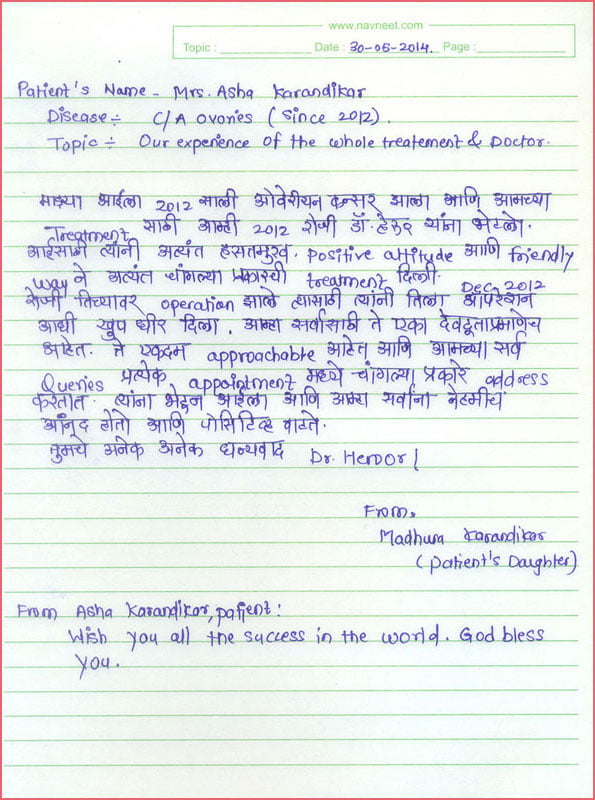 www.navneet.com
Topic : Date : 30-05-2014. Page :
Patient's Name - Mrs. Asha Karandikar
Disease :- C/A ovories (since 2012).
Topic :- Our experience of the whole treatement & Doctor.
माझ्या आईला 2012 साली ओवेरीयन कॅन्सर झाला आणि आमच्या
Treatment साठी आम्ही 2012 रोजी डॉ. हेरूर यांना भेटलो.
आईसाठी त्यांनी अत्यंत हसतमुख, positive attitude आणि friendly
way ने अत्यंत चांगल्या प्रकारची treatment दिली. Dec 2012
रोजी तिच्यावर operation झाले त्यासाठी त्यांनी तिला ऑपरेशन
आधी खुप धीर दिला. आम्हा सर्वांसाठी ते एका देवदूताप्रमाणेच
आहेत. ते एकदम approachable आहेत आणि आमच्या सर्व
Queries प्रत्येक appointment मध्ये चांगल्या प्रकारे address
करतात. त्यांना भेटून आईला आणि आम्हा सर्वांना नेहमीच
आनंद होतो आणि पोसिटिव्ह वाटते.
तुमचे अनेक अनेक धन्यवाद Dr. Heroor!
From,
Madhura Karandikar
(Patient's Daughter)
From Asha Karandikar, patient:
Wish you all the success in the world. God bless
you.